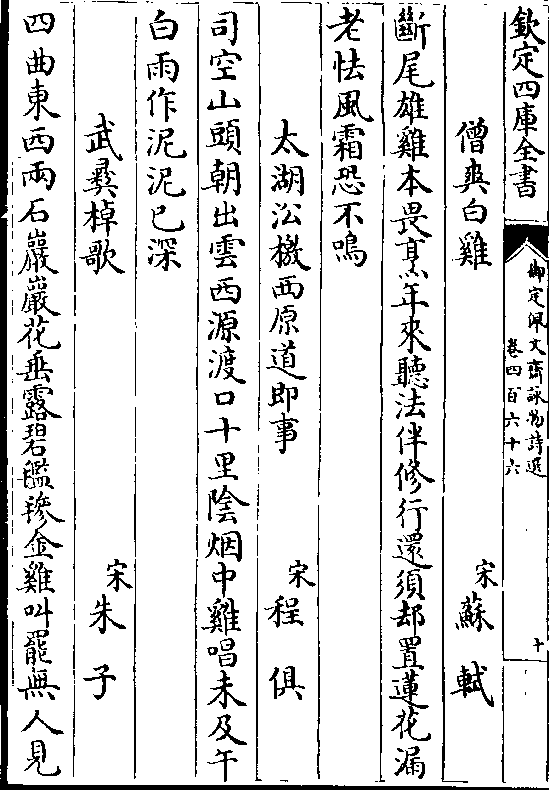 欽定四庫全書
御定佩文齋詠物詩選
卷四百六十六
十
僧爽白雞
宋蘇軾
斷尾雄雞本畏烹年來聽法伴修行還須却置蓮花漏
老怯風霜恐不鳴
太湖㳂檄西原道即事
宋程俱
司空山頭朝出雲西源渡口十里陰烟中雞唱未及午
白雨作泥泥已深
武彛棹歌
宋朱子
四曲東西兩石巖巖花垂露碧㲯毶金雞叫罷無人見